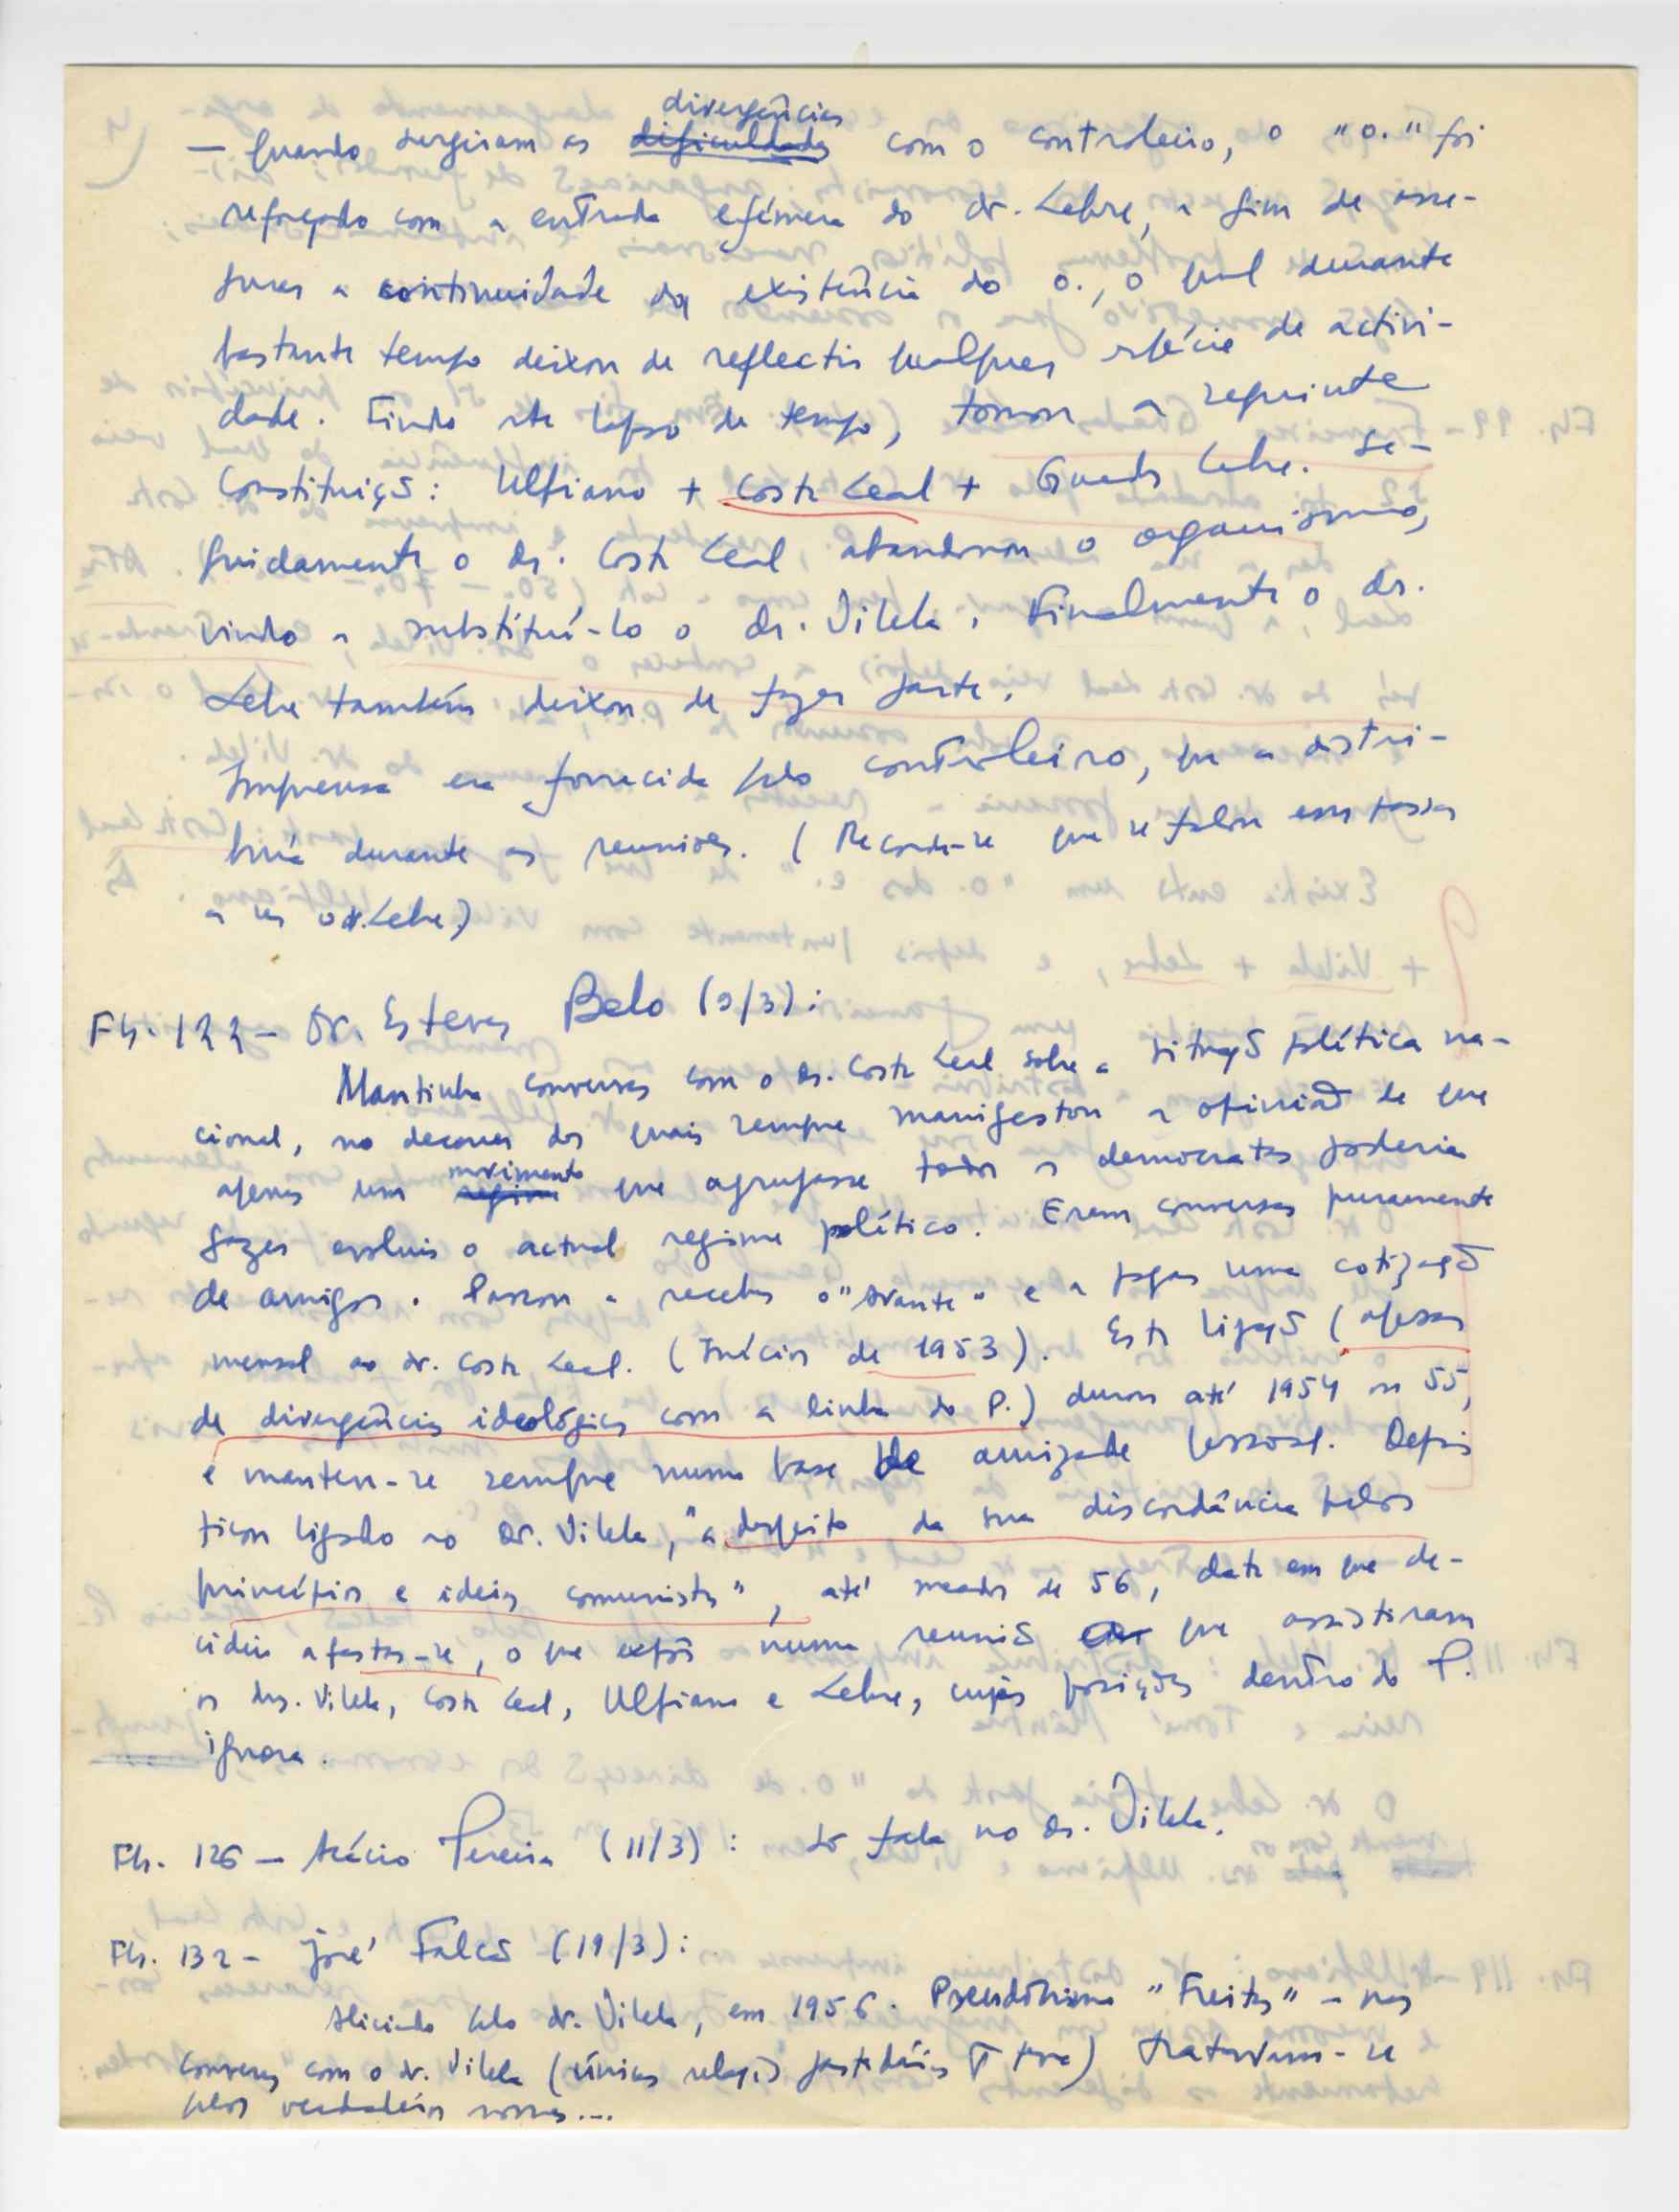 divergências
— Quando surgiram as dificuldades com o controleiro, o "o." foi
reforçado com a entrada efémera do dr. Lebre, a fim de asse-
gurar a continuidade da existência do o., o qual durante
bastante tempo deixou de reflectir qualquer espécie de activi-
dade. Findo este lapso de tempo, tomou a seguinte
Constituição: Ulpiano + Costa Leal + Guedes Lebre. Se-
guidamente o dr. Costa Leal abandonou o organismo,
vindo a substituí-lo o dr. Vilela. Finalmente o dr.
Lebre também deixou de fazer parte.
Imprensa era fornecida pelo controleiro, que a distri-
buía durante as reuniões. (Recorda-se que se falou em passar
a ser o dr. Lebre)
Fls. 122 – Dr. Esteves Belo (9/3):
Mantinha conversas com o dr. Costa Leal sobre a situação política na-
cional, no decorrer das quais sempre manifestou a opinião de que
movimento
apenas um regime que agrupasse todos os democratas poderia
fazer evoluir o actual regime político. Eram conversas puramente
de amigos. Passou a receber o "Avante" e a pagar uma cotização
mensal ao dr. Costa Leal. (Inícios de 1953). Esta ligação (apesar
de divergências ideológicas com a linha do P.) durou até 1954 ou 55,
e manteu-se sempre numa base de amizade pessoal. Depois
ficou ligado ao Dr. Vilela, "a despeito da sua discordância pelos
princípios e ideias comunistas", até meados de 56, data em que de-
cidiu afastar-se, o que expôs numa reunião em que assistiram
os drs. Vilela, Costa Leal, Ulpiano e Lebre, cujas posições dentro do P.
ignora.
Fls. 126 – Acácio Pereira (11/3): Só fala no dr. Vilela.
Fls. 132 – José Falcão (19/3):
Aliciado pelo dr. Vilela, em 1956. Pseudónimo "Freitas" – nas
conversas com o dr. Vilela (únicas relações partidárias q teve) tratavam-se
pelos verdadeiros nomes...